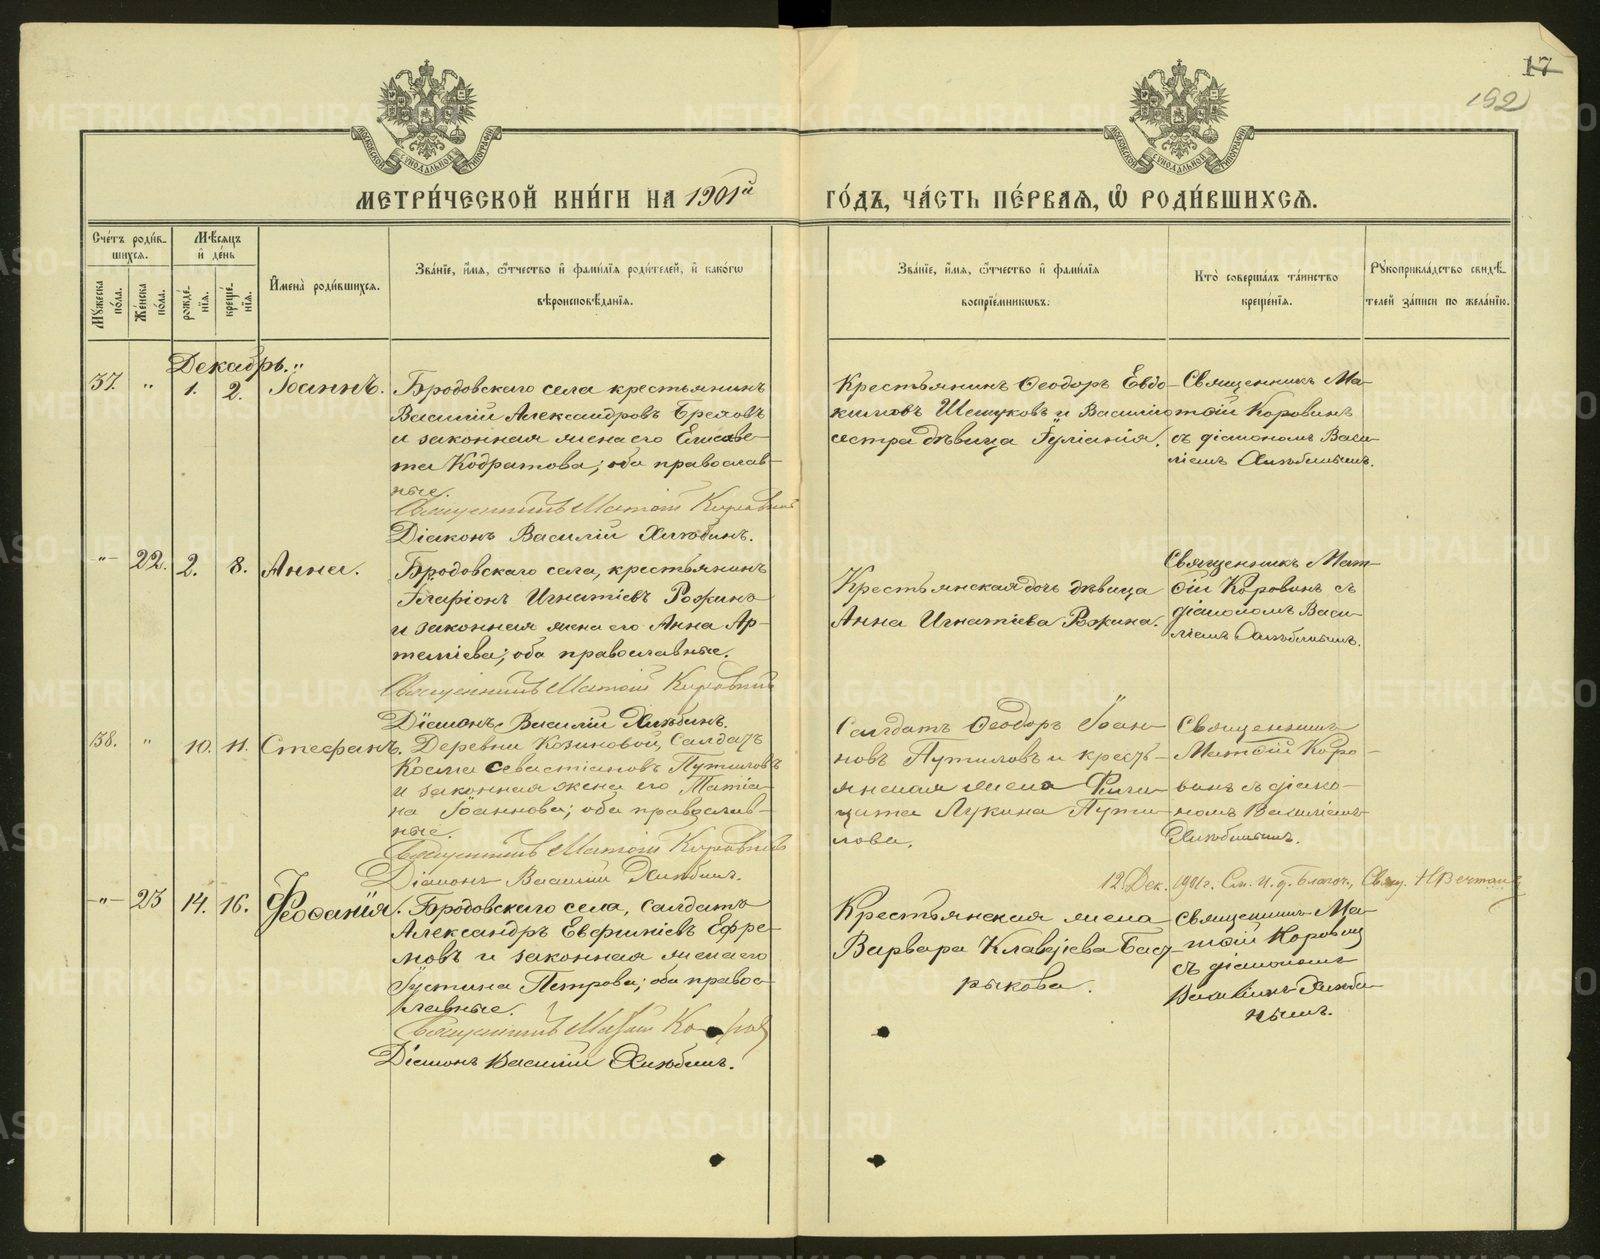 17
192
МЕТРИ́ЧЕСКОЙ КНИ́ГИ НА 1901й ГО́ДЪ, ЧА́СТЬ ПЕ́РВАѦ, Ѡ҆ РОДИ́ВШИХСѦ.
МОСКОВСКОЙ СѴНОДАЛЬНОЙ ТИПОГРАФІИ
МОСКОВСКОЙ СѴНОДАЛЬНОЙ ТИПОГРАФІИ
Сче́тъ роди́в-
шихсѧ.
Мꙋ́жеска по́ла.
Же́нска по́ла.
Мѣ́сѧцъ
и҆ де́нь
рожде́-
нїѧ.
креще́-
нїѧ.
И҆мена̀ роди́вшихсѧ.
Зва́нїе, и҆́мѧ, ѻ҆́тчество и҆ фамѝлїѧ роди́телей, и҆ како́гѡ
вѣроисповѣ́данїѧ.
Зва́нїе, и҆́мѧ, ѻ҆́тчество и҆ фамѝлїѧ
воспрїе́мникѡвъ.
Кто̀ соверша́лъ та́инство
креще́нїѧ.
Рꙋкоприкла́дство свидѣ́-
телей за́писи по жела́нїю.
Декабрь.
37. " 1. 2. Іоаннъ.
Бродовскаго села крестьянинъ
Василій Александровъ
и законная жена его Елисаве-
та Кодратова; оба православ-
ные.
Священникъ Матѳій Коровинъ
Діаконъ Василій Хлюбинъ.
Крестьянинъ Ѳеодоръ Евдо-
кимовъ Шешуковъ и Василія
сестра дѣвица Іуліанія.
Священникъ Ма-
тѳій Коровинъ
съ діакономъ Васи-
ліемъ Хлюбинымъ.
" 22. 2. 8. Анна.
Бродовскаго села, крестьянинъ
Иларіонъ Игнатіевъ Рожинъ
и законная жена его Анна Ар-
теміева; оба православные.
Священникъ Матѳій Коровинъ
Діаконъ Василій Хлюбинъ.
Крестьянская дочь дѣвица
Анна Игнатіева Рожина.
Священникъ Мат-
ѳій Коровинъ съ
діакономъ Васи-
ліемъ Хлюбинымъ.
38. " 10. 11. Стефанъ.
Деревни Козиновой, Салдатъ
Косма Севастіановъ Путиловъ
и законная жена его Татіа-
на Іоаннова; оба православ-
ные.
Священникъ Матѳій Коровинъ
Діаконъ Василій Хлюбинъ.
Салдатъ Ѳеодоръ Іоан-
новъ Путиловъ и кресть-
янская жена Фили-
цата Лукина Пути-
лова.
Священникъ
Матѳій Коро-
винъ съ діако-
номъ Василіемъ
Хлюбинымъ.
12 Дек. 1901 г. См. И. д. Благоч., Свящ.
" 23 14. 16. Ѳеофанія.
Бродовскаго села, Салдатъ
Александръ Евфиміевъ Ефре-
мовъ и законная жена его
Іустина Петрова; оба правос-
лавные.
Священникъ Матѳій
Діаконъ Василій Хлюбинъ.
Крестьянская жена
Варвара Клавдіева Баз-
рыкова.
Священникъ Ма-
тѳій Коровинъ
съ діакономъ
Василіемъ Хлюби-
нымъ.